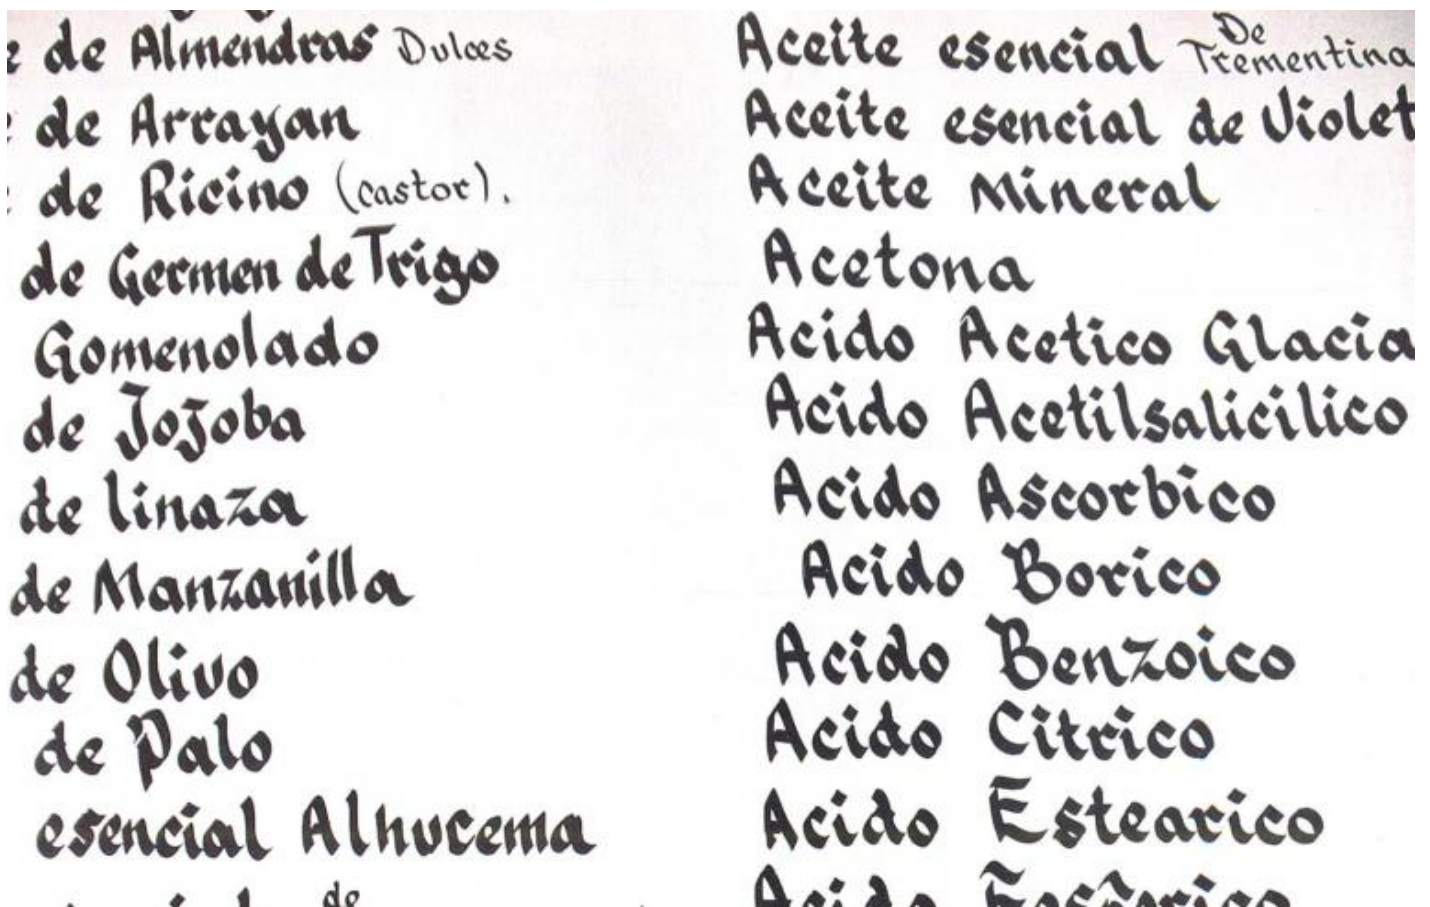 de Almendras Dulces
de Arrayan
de Ricino (castor).
de Germen de Trigo
Gomenolado
de Jojoba
de linaza
de Manzanilla
de Olivo
de Palo
esencial Alhucema
de
Aceite esencial De Trementina
Aceite esencial de Violet
Aceite Mineral
Acetona
Acido Acetico Glacia
Acido Acetilsalicilico
Acido Ascorbico
Acido Borico
Acido Benzoico
Acido Citrico
Acido Estearico
Acido Fosforico